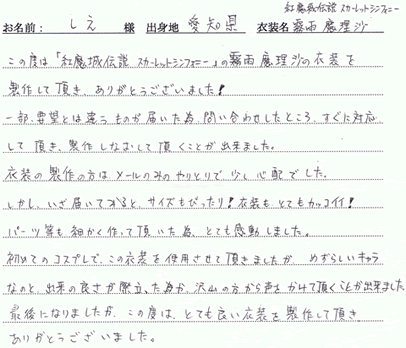 紅魔城伝説 スカーレットシンフォニー
お名前： しえ 様 出身地 愛知県 衣装名 霧雨魔理沙
この度は「紅魔城伝説 スカーレットシンフォニー」の霧雨魔理沙の衣装を
製作して頂き、ありがとうございました！
一部、要望とは違うものが届いた為、問い合わせしたところ、すぐに対応
して頂き、製作しなおして頂くことが出来ました。
衣装の製作の方はメールのみのやりとりで少し心配でした。
しかし、いざ届いてみると、サイズもぴったり！衣装もとてもカッコイイ！
パーツ等も細かく作って頂いた為、とても感動しました。
初めてのコスプレで、この衣装を使用させて頂きましたが、めずらしいキャラ
なのと、出来の良さが際立った為か、沢山の方から声をかけて頂くことが出来ました
最後になりましたが、この度は、とても良い衣装を製作して頂き
ありがとうございました。